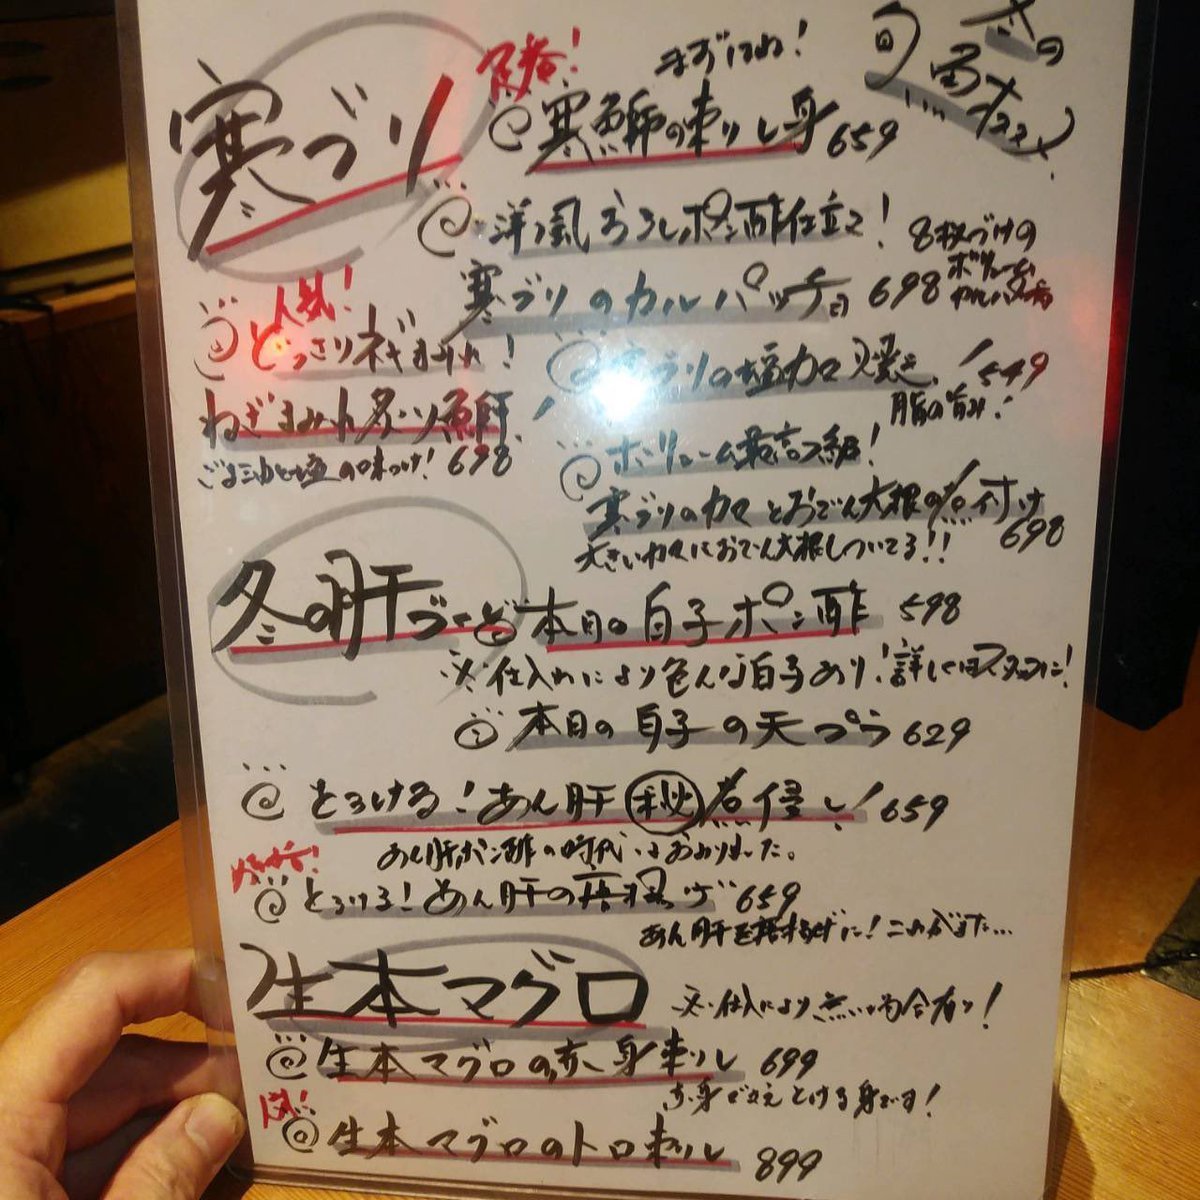 冬の
旬
寒ブリ
まずはね!
寒鰤の刺し身 659
洋風おろしポン酢仕立て!
寒ブリのカルパッチョ 698
8枚づけの
ボリューム
人気!
どっさりネギまみれ!
ねぎまみれ炙り
ごま油と塩の味つけ! 698
寒ブリの塩カマ焼き! 549
脂の旨み!
ボリューム最高級!
寒ブリのカマとおでん大根の煮付け
698
大きいカマにおでん大根しついてる!!
冬の肝づくし
本日の白子ポン酢 598
※仕入れにより色んな白子あり!詳しくはスタッフに!
本日の白子の天ぷら 629
とろける!あん肝㊙煮浸し! 659
あん肝ポン酢の時代はおわりました。
とろける!あん肝の唐揚げ 659
あん肝を唐揚げに!これがまた…
生本マグロ
※仕入により無い場合有り!
生本マグロの赤身刺し 699
赤身で立えとける身です!
人気!
生本マグロのトロ刺し 899